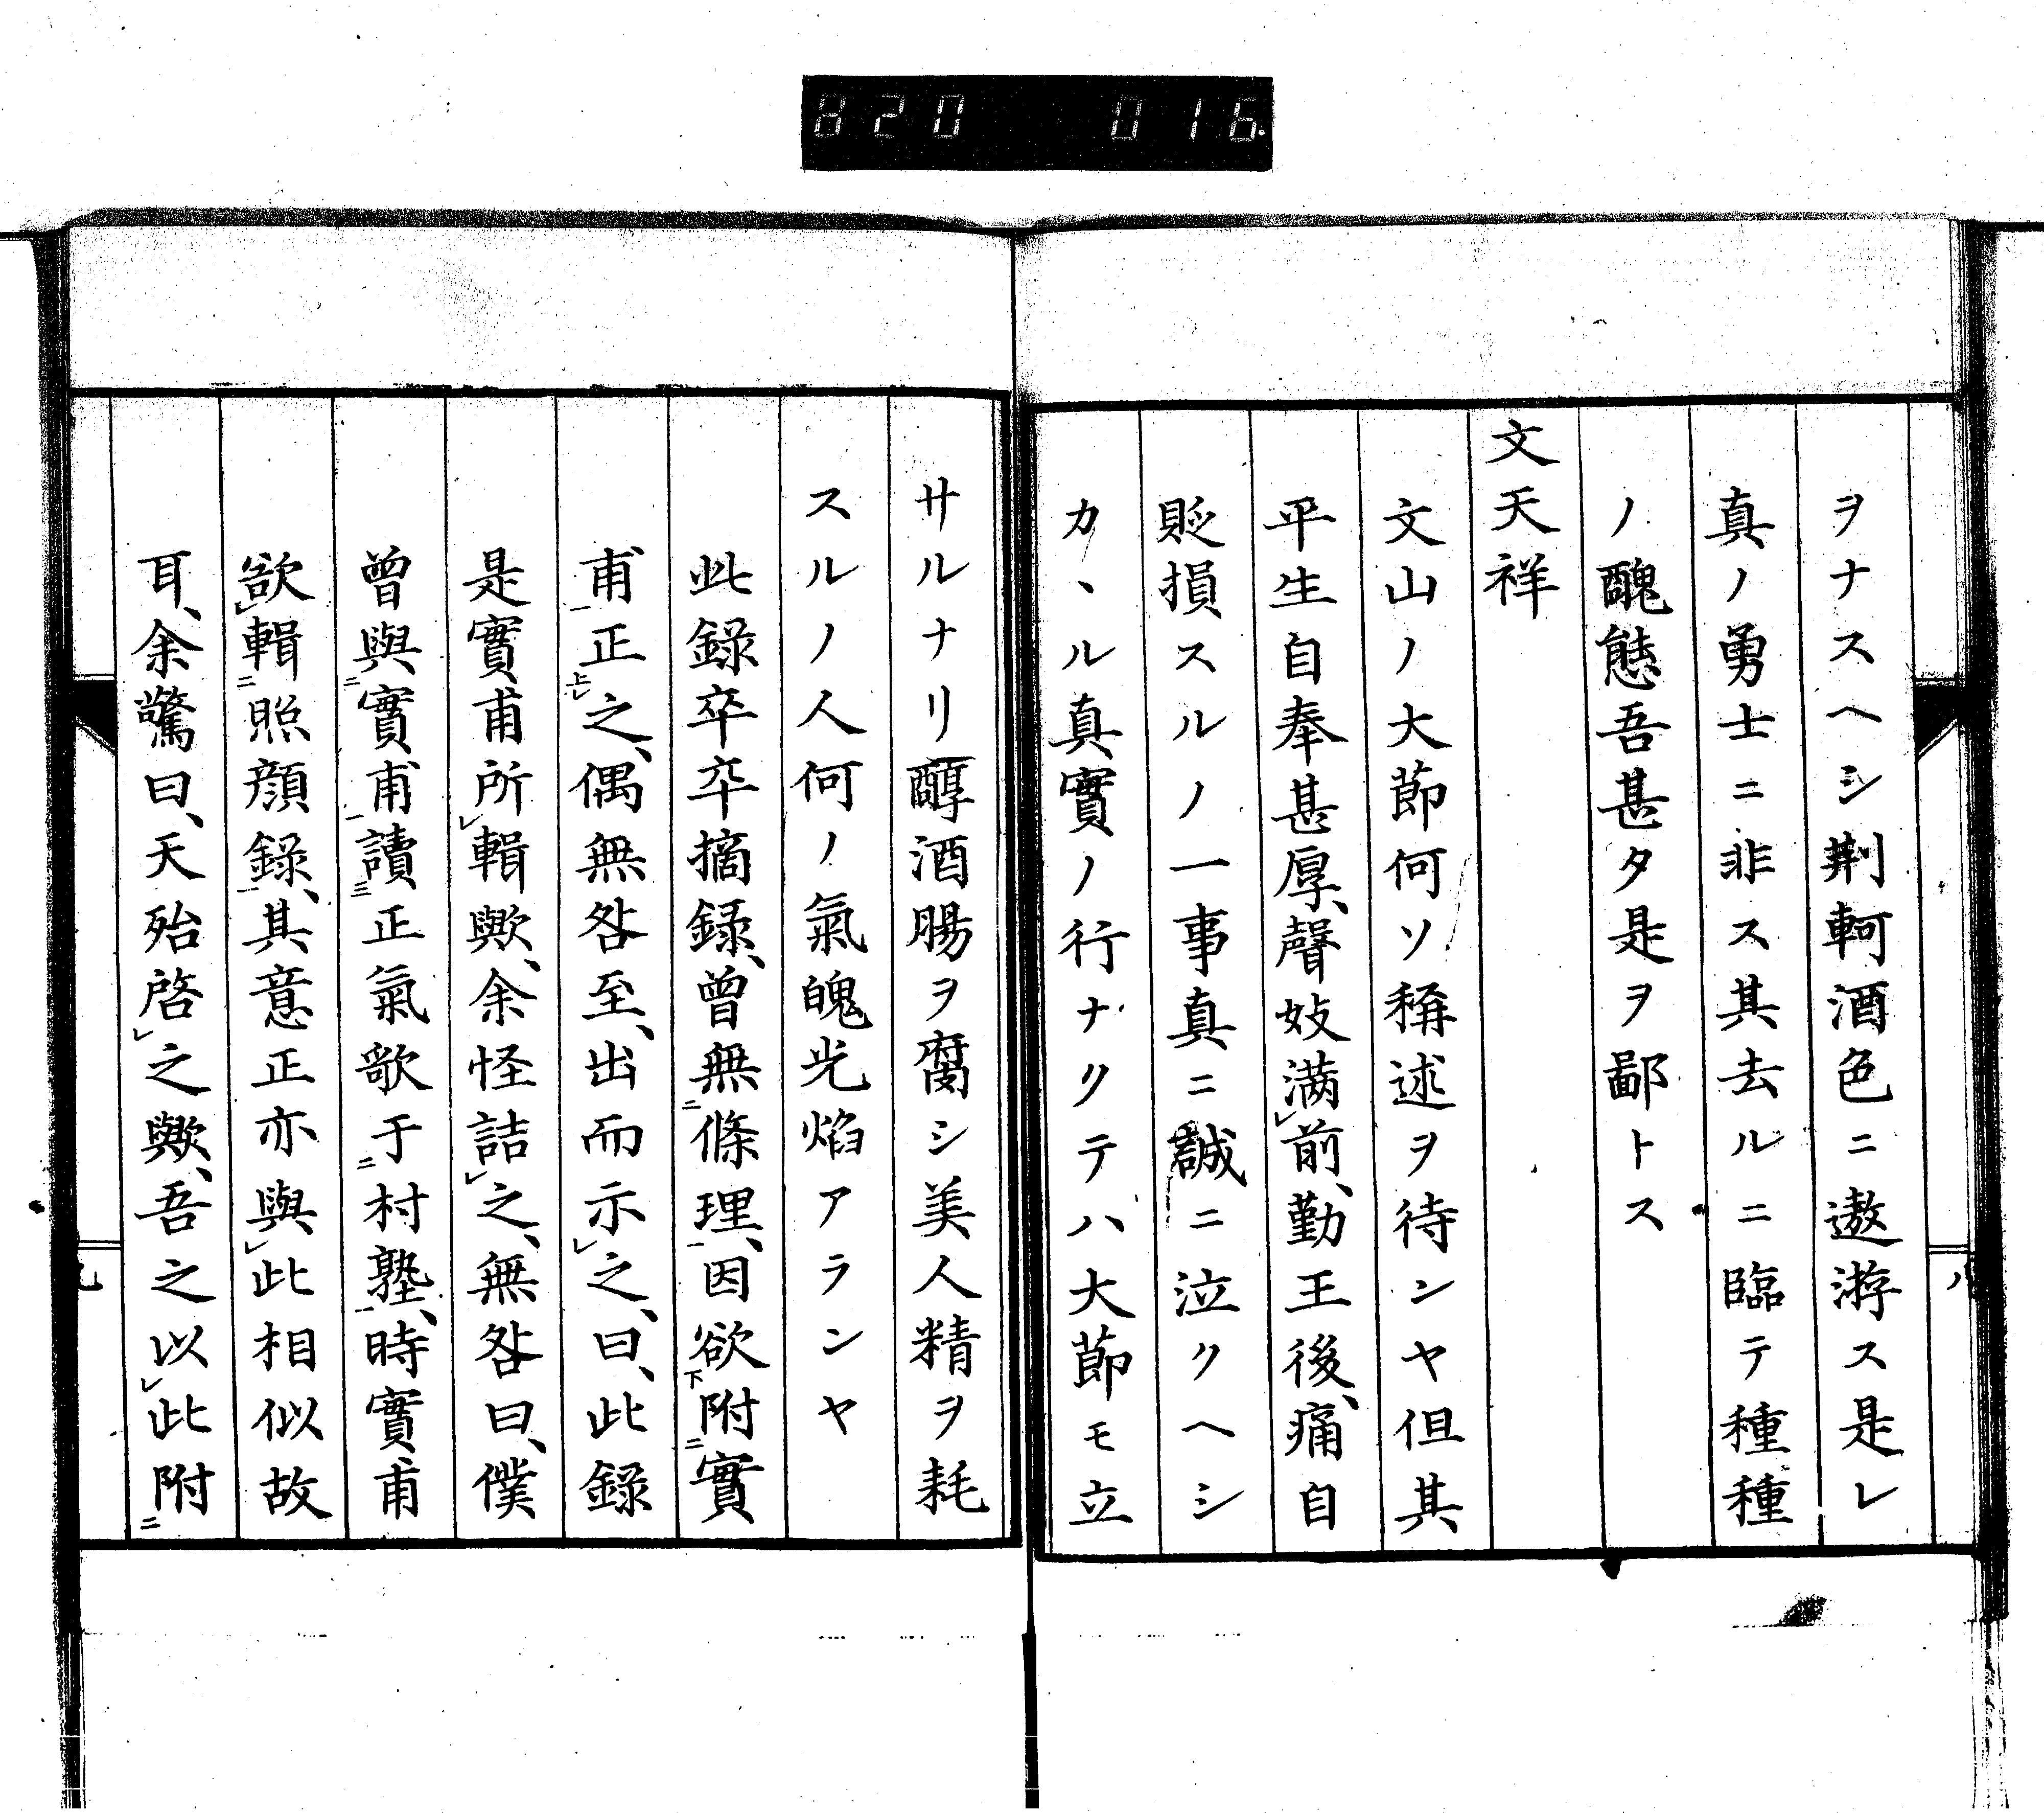 820 016.
ヲナスヘシ荆軻酒色ニ遨游ス是レ
真ノ勇士ニ非ス其去ルニ臨テ種種
ノ醜態吾甚タ是ヲ鄙トス
文天祥
文山ノ大節何ソ稱述ヲ待ンヤ但其
平生自奉甚厚、聲妓滿㆑前、勤王後、痛自
貶損スルノ一事真ニ誠ニ泣クヘシ
カヽル真實ノ行ナクテハ大節モ立
八
サルナリ醇酒腸ヲ腐シ美人精ヲ耗
スルノ人何ノ氣魄光焰アランヤ
此錄卒卒摘錄、曾無㆓條理㆒、因欲㆘附㆓實
甫㆒正㆖㆑之、偶無咎至、出而示㆑之、曰、此錄
是實甫所㆑輯歟、余怪詰㆑之、無咎曰、僕
曾與㆓實甫㆒讀㆔正氣歌于㆓村塾㆒、時實甫
欲㆑輯㆓照顔錄㆒、其意正亦與㆑此相似故
耳、余驚曰、天殆啓㆑之歟、吾之以㆑此附㆓
九